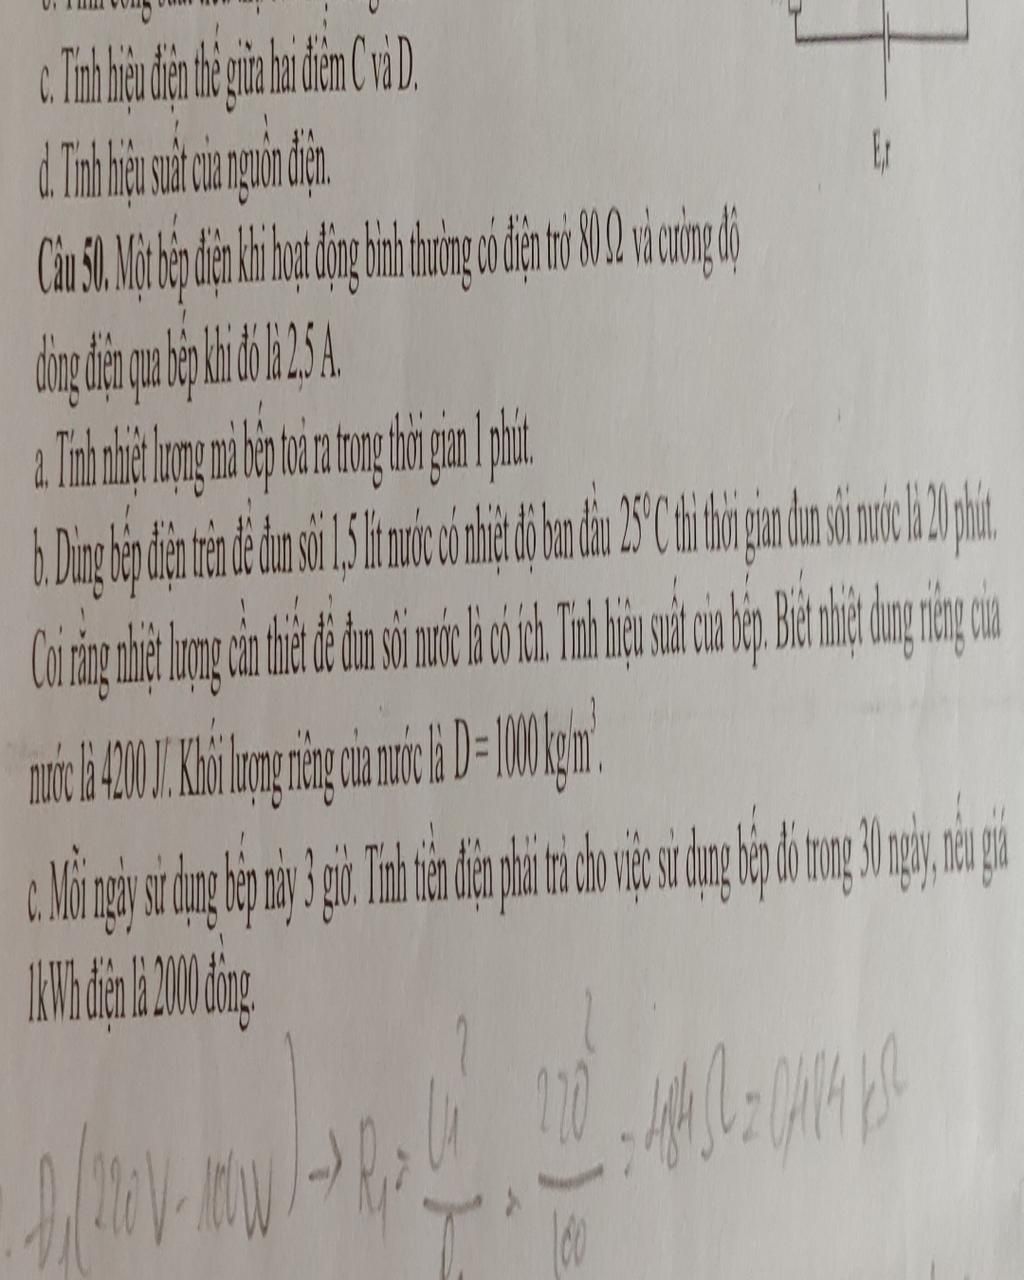 c. Tính hiệu điện thế giữa hai điểm C và D.
d. Tính hiệu suất của nguồn điện.
E,r
Câu 50. Một bếp điện khi hoạt động bình thường có điện trở 80 Ω và cường độ
dòng điện qua bếp khi đó là 2,5 A.
a. Tính nhiệt lượng mà bếp toả ra trong thời gian 1 phút.
b. Dùng bếp điện trên để đun sôi 1,5 lít nước có nhiệt độ ban đầu 25°C thì thời gian đun sôi nước là 20 phút.
Coi rằng nhiệt lượng cần thiết để đun sôi nước là có ích. Tính hiệu suất của bếp. Biết nhiệt dung riêng của
nước là 4200 J/. Khối lượng riêng của nước là D = 1000 kg/m³.
c. Mỗi ngày sử dụng bếp này 3 giờ. Tính tiền điện phải trả cho việc sử dụng bếp đó trong 30 ngày, nếu giá
1kWh điện là 2000 đồng.
Đ₁(220V-100W) → R₁ = U₁²/P₁ = 220²/100 = 484 Ω = 0,484 kΩ